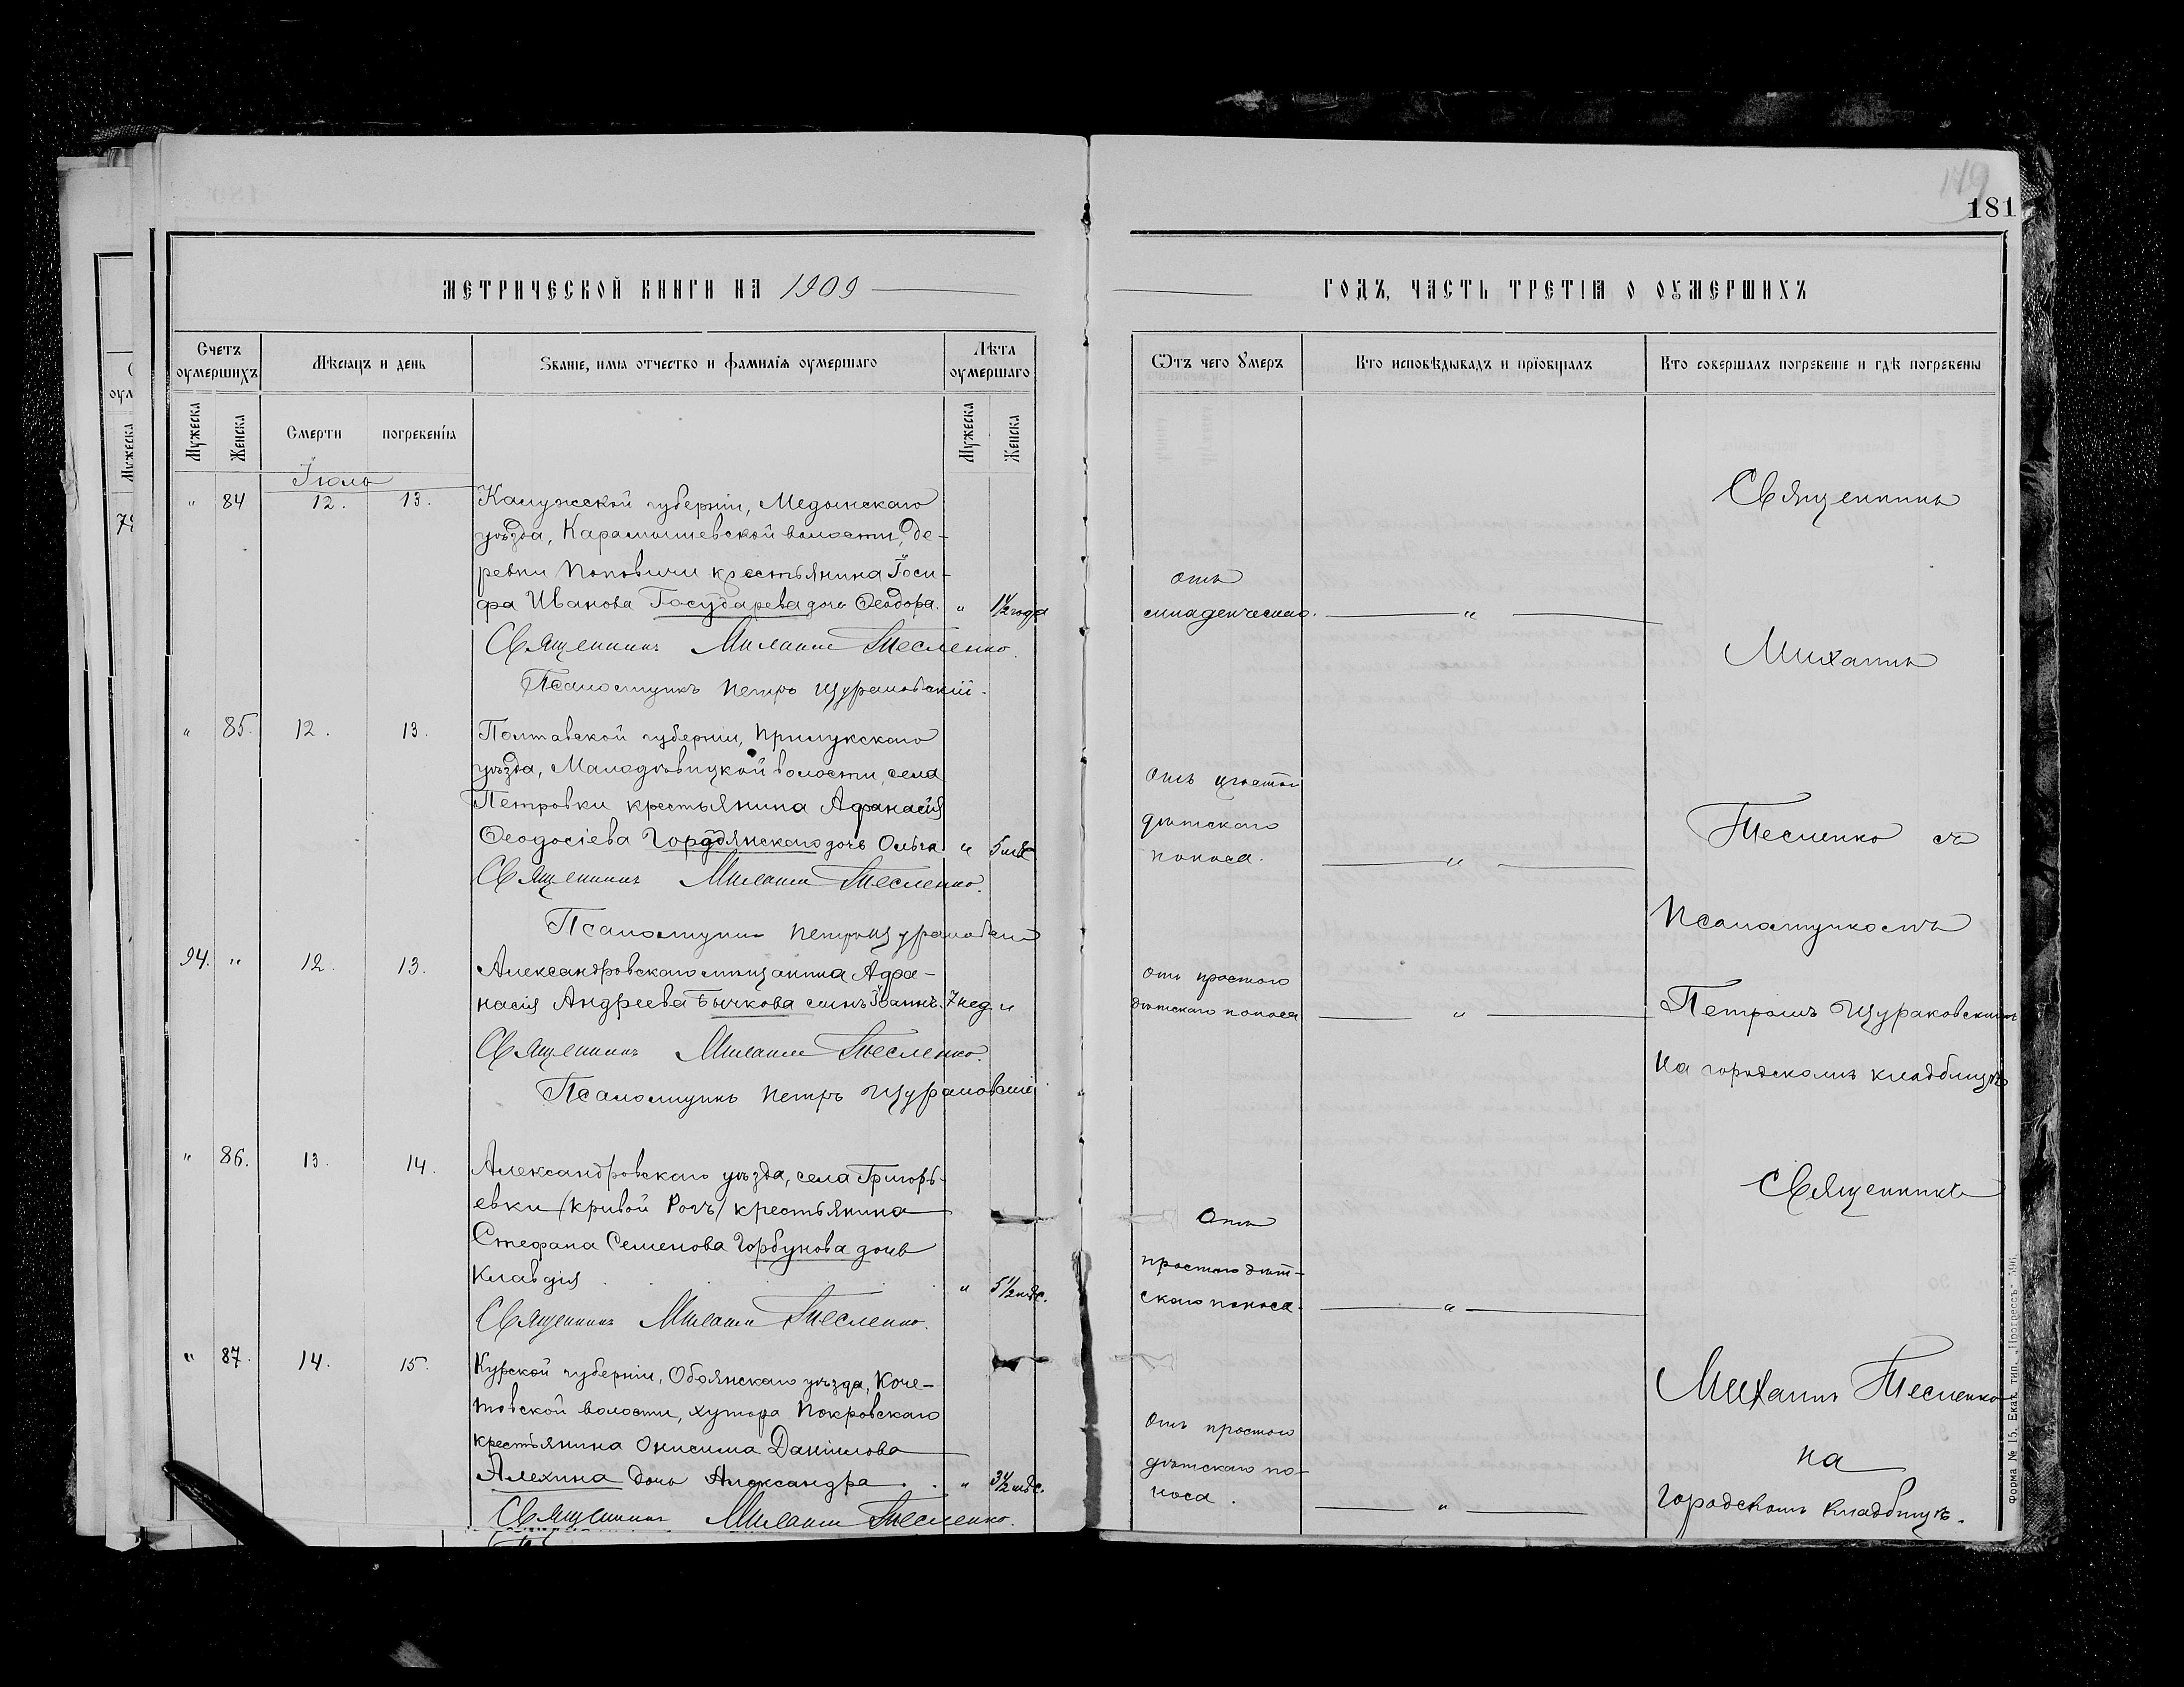 149
181
МЕТРИЧЕСКОЙ КНИГИ НА 1909
ГОДЪ, ЧАСТЬ ТРЕТІѦ О ОУМЕРШИХЪ
Счетъ оумершихъ
Мѣсѧцъ и день
Ѕваніе, имѧ отчество и фамилїѧ оумершаго
Лѣта оумершаго
Ѿтъ чего Ꙋмеръ
Кто исповѣдывалъ и прїобщалъ
Кто совершалъ погребенїе и гдѣ погребены
Мужеска
Женска
Смерти
погребенїѧ
Мужеска
Женска
Іюль
" 84 12. 13. Калужской губерніи, Медынскаго
уѣзда, Карамышевской волости, де-
ревни Поповичи крестьянина Іоси-
фа Иванова Государева дочь Ѳеодора. " 1½ года
Священникъ Михаилъ Тесленко.
Псаломщикъ Петръ Щураковскій.
отъ
младенческаго. "
" 85. 12. 13. Полтавской губерніи, Прилукскаго
уѣзда, Малодѣвицкой волости, села
Петровки крестьянина Афанасія
Ѳеодосіева Гордѣянскаго дочь Ольга " 5 мѣс
Священникъ Михаилъ Тесленко.
Псаломщикъ Петръ Щураковскій
дѣтскаго
поноса. "
94. " 12. 13. Александровскаго мѣщанина Афа-
насія Андреева Бычкова сынъ Іоаннъ. 7 нед "
Священникъ Михаилъ Тесленко.
Псаломщикъ Петръ Щураковскій
отъ простого
дѣтскаго поноса "
" 86. 13. 14. Александровскаго уѣзда, села Григорь-
евки (Кривой Рогъ) крестьянина
Стефана Семенова Горбунова дочь
Клавдія " 5½ мѣс.
Священникъ Михаилъ Тесленко.
Отъ
простого дѣт-
скаго поноса. "
" 87. 14. 15. Курской губерніи, Обоянскаго уѣзда, Коче-
товской волости, хутора Покровскаго
крестьянина Онисима Даніилова
Алехина дочь Александра . . " 3½ мѣс.
Священникъ Михаилъ Тесленко.
Отъ простого
дѣтскаго по-
носа. "
Священникъ
Михаилъ
Тесленко съ
Псаломщикомъ
Петромъ Щураковскимъ
На городскомъ кладбищѣ
Священникъ
Михаилъ Тесленко
на
городскомъ кладбищѣ.
Форма № 15. Екат. тип. „Прогрессъ"